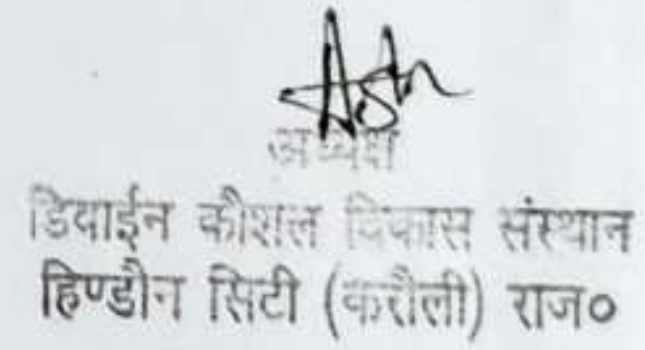 अध्यक्ष
डिवाईन कौशल विकास संस्थान
हिण्डौन सिटी (करौली) राज०